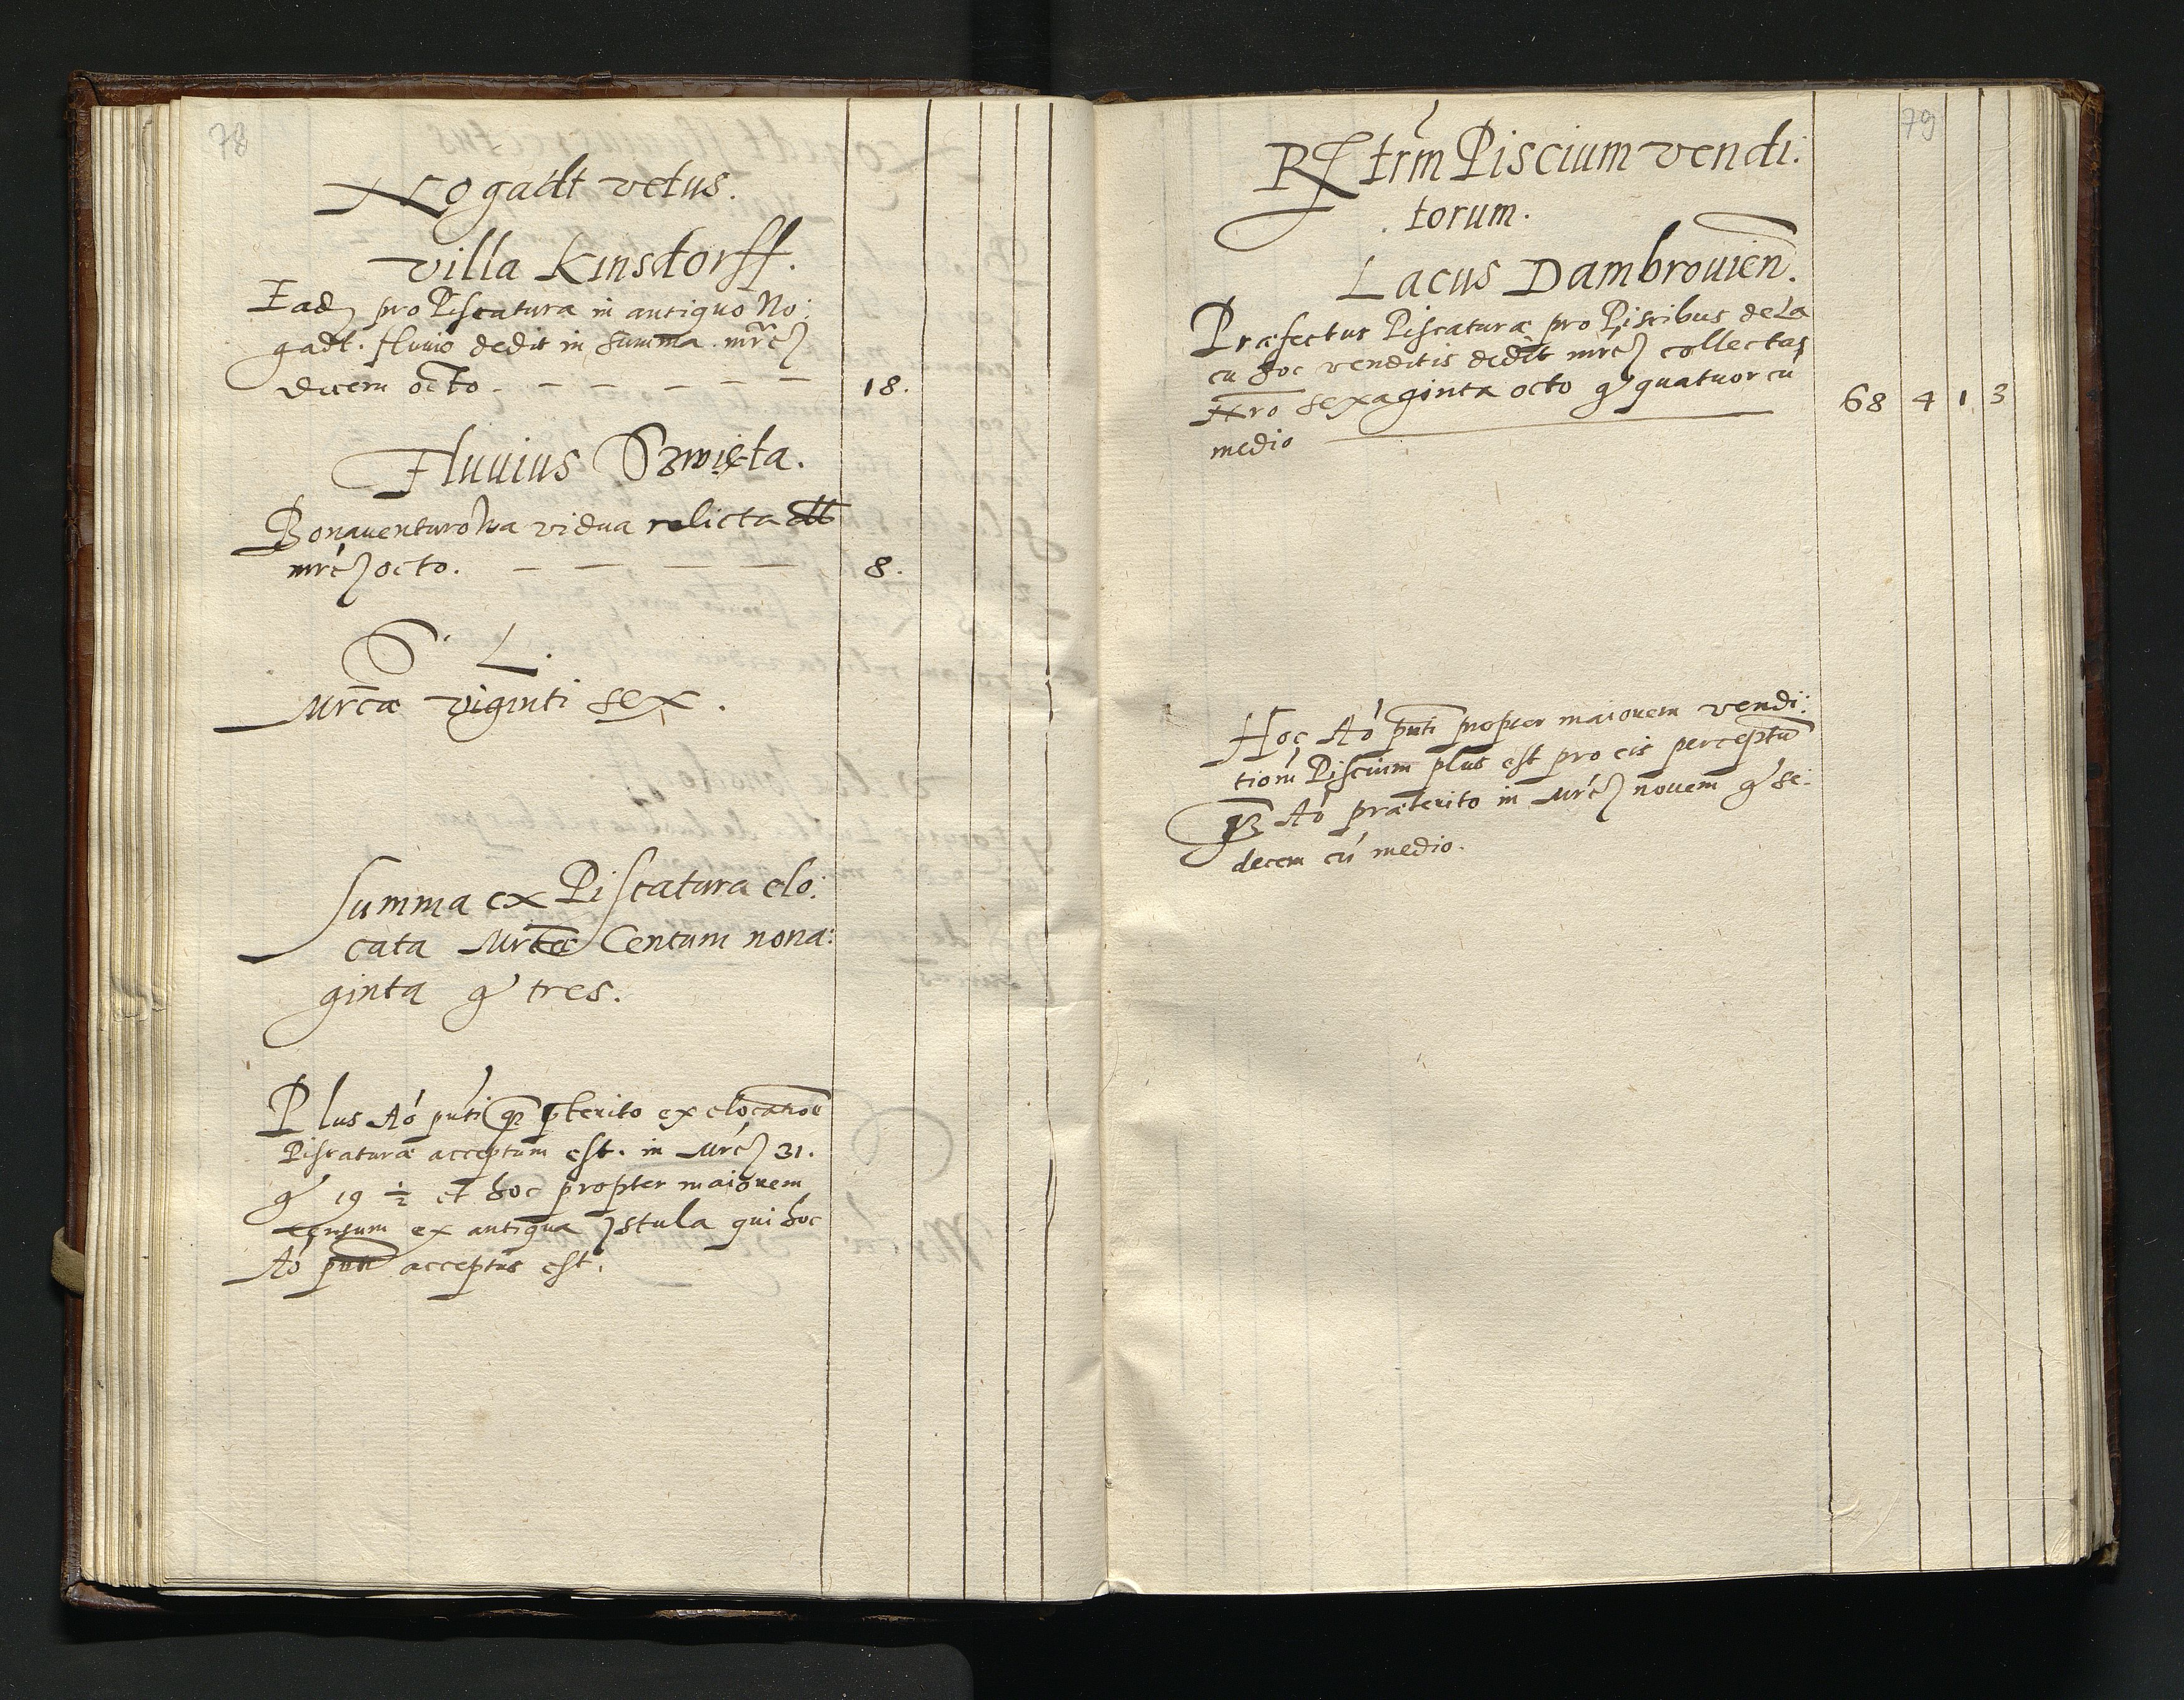 78
Nogadt vetus.
villa Kinsdorff.
Ead[em] pro Piscatura in antiquo No:
gadt. fluuio dedit in summa mrc[as]
decem octo. – – – – – 18.
Fluuius Szwięta.
Bonauenturowa vidua relicta dt
mrc[as] octo. – – – – 8.
S. L.
Mrcæ viginti sex.
Summa ex Piscatura elo:
cata Mrcæ Centum nona:
ginta g' tres.
Plus Aō pūti q̄ pterito ex elocatioē
Piscaturæ acceptum est. in Mrc[is] 31.
g' 19 ½ et hoc propter maiorem
censum ex antiqua Istula qui hoc
Aō pūti acceptus est.
79
Rg̃trm Piscium vendi:
torum.
Lacus Dambrouień.
Præfectus Piscaturæ pro Piscibus de La
cu hoc venditis dedit mrc[as] collectas
Nro sexaginta octo g' quatuor cū
medio 68 4 1 3
Hoc Aō pūti propter maiorem vendi:
tionū Piscium plus est pro eis perceptū
q̄ Aō præterito in Mrc[is] nouem g' se:
decem cū medio.